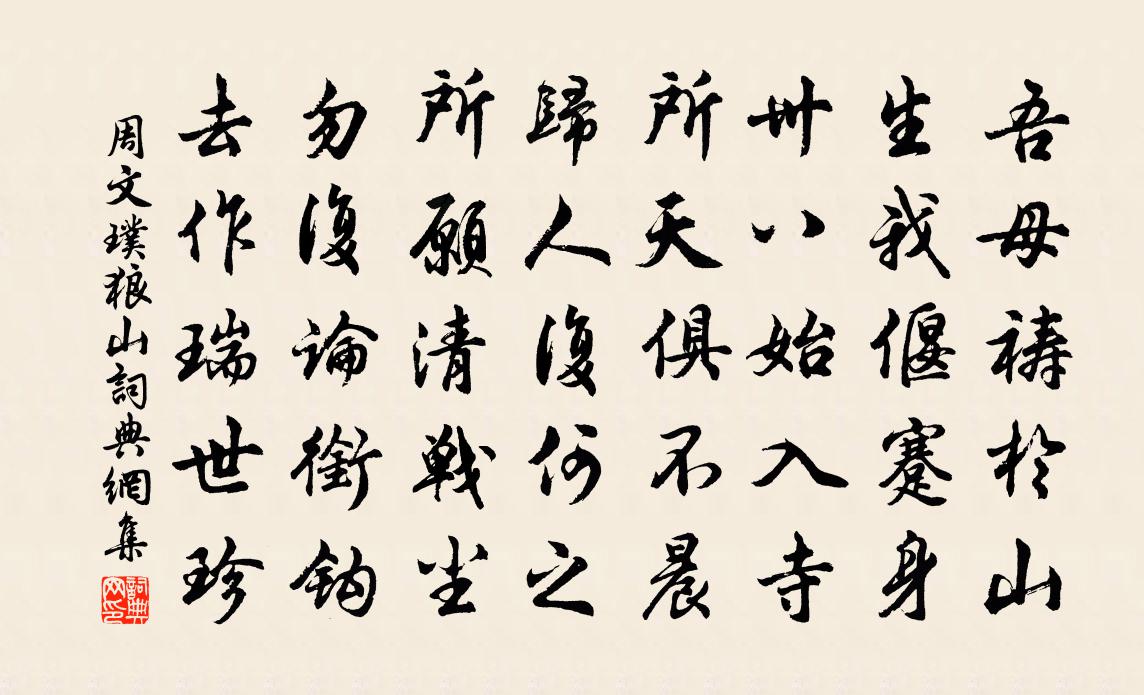 吾母禱於山
生我偃蹇身
卅八始入寺
所天俱不晨
歸人復何之
所願清戦塵
勿復論銜鈎
去作瑞世珍
周文璞狼山詞典網集
詞典網印